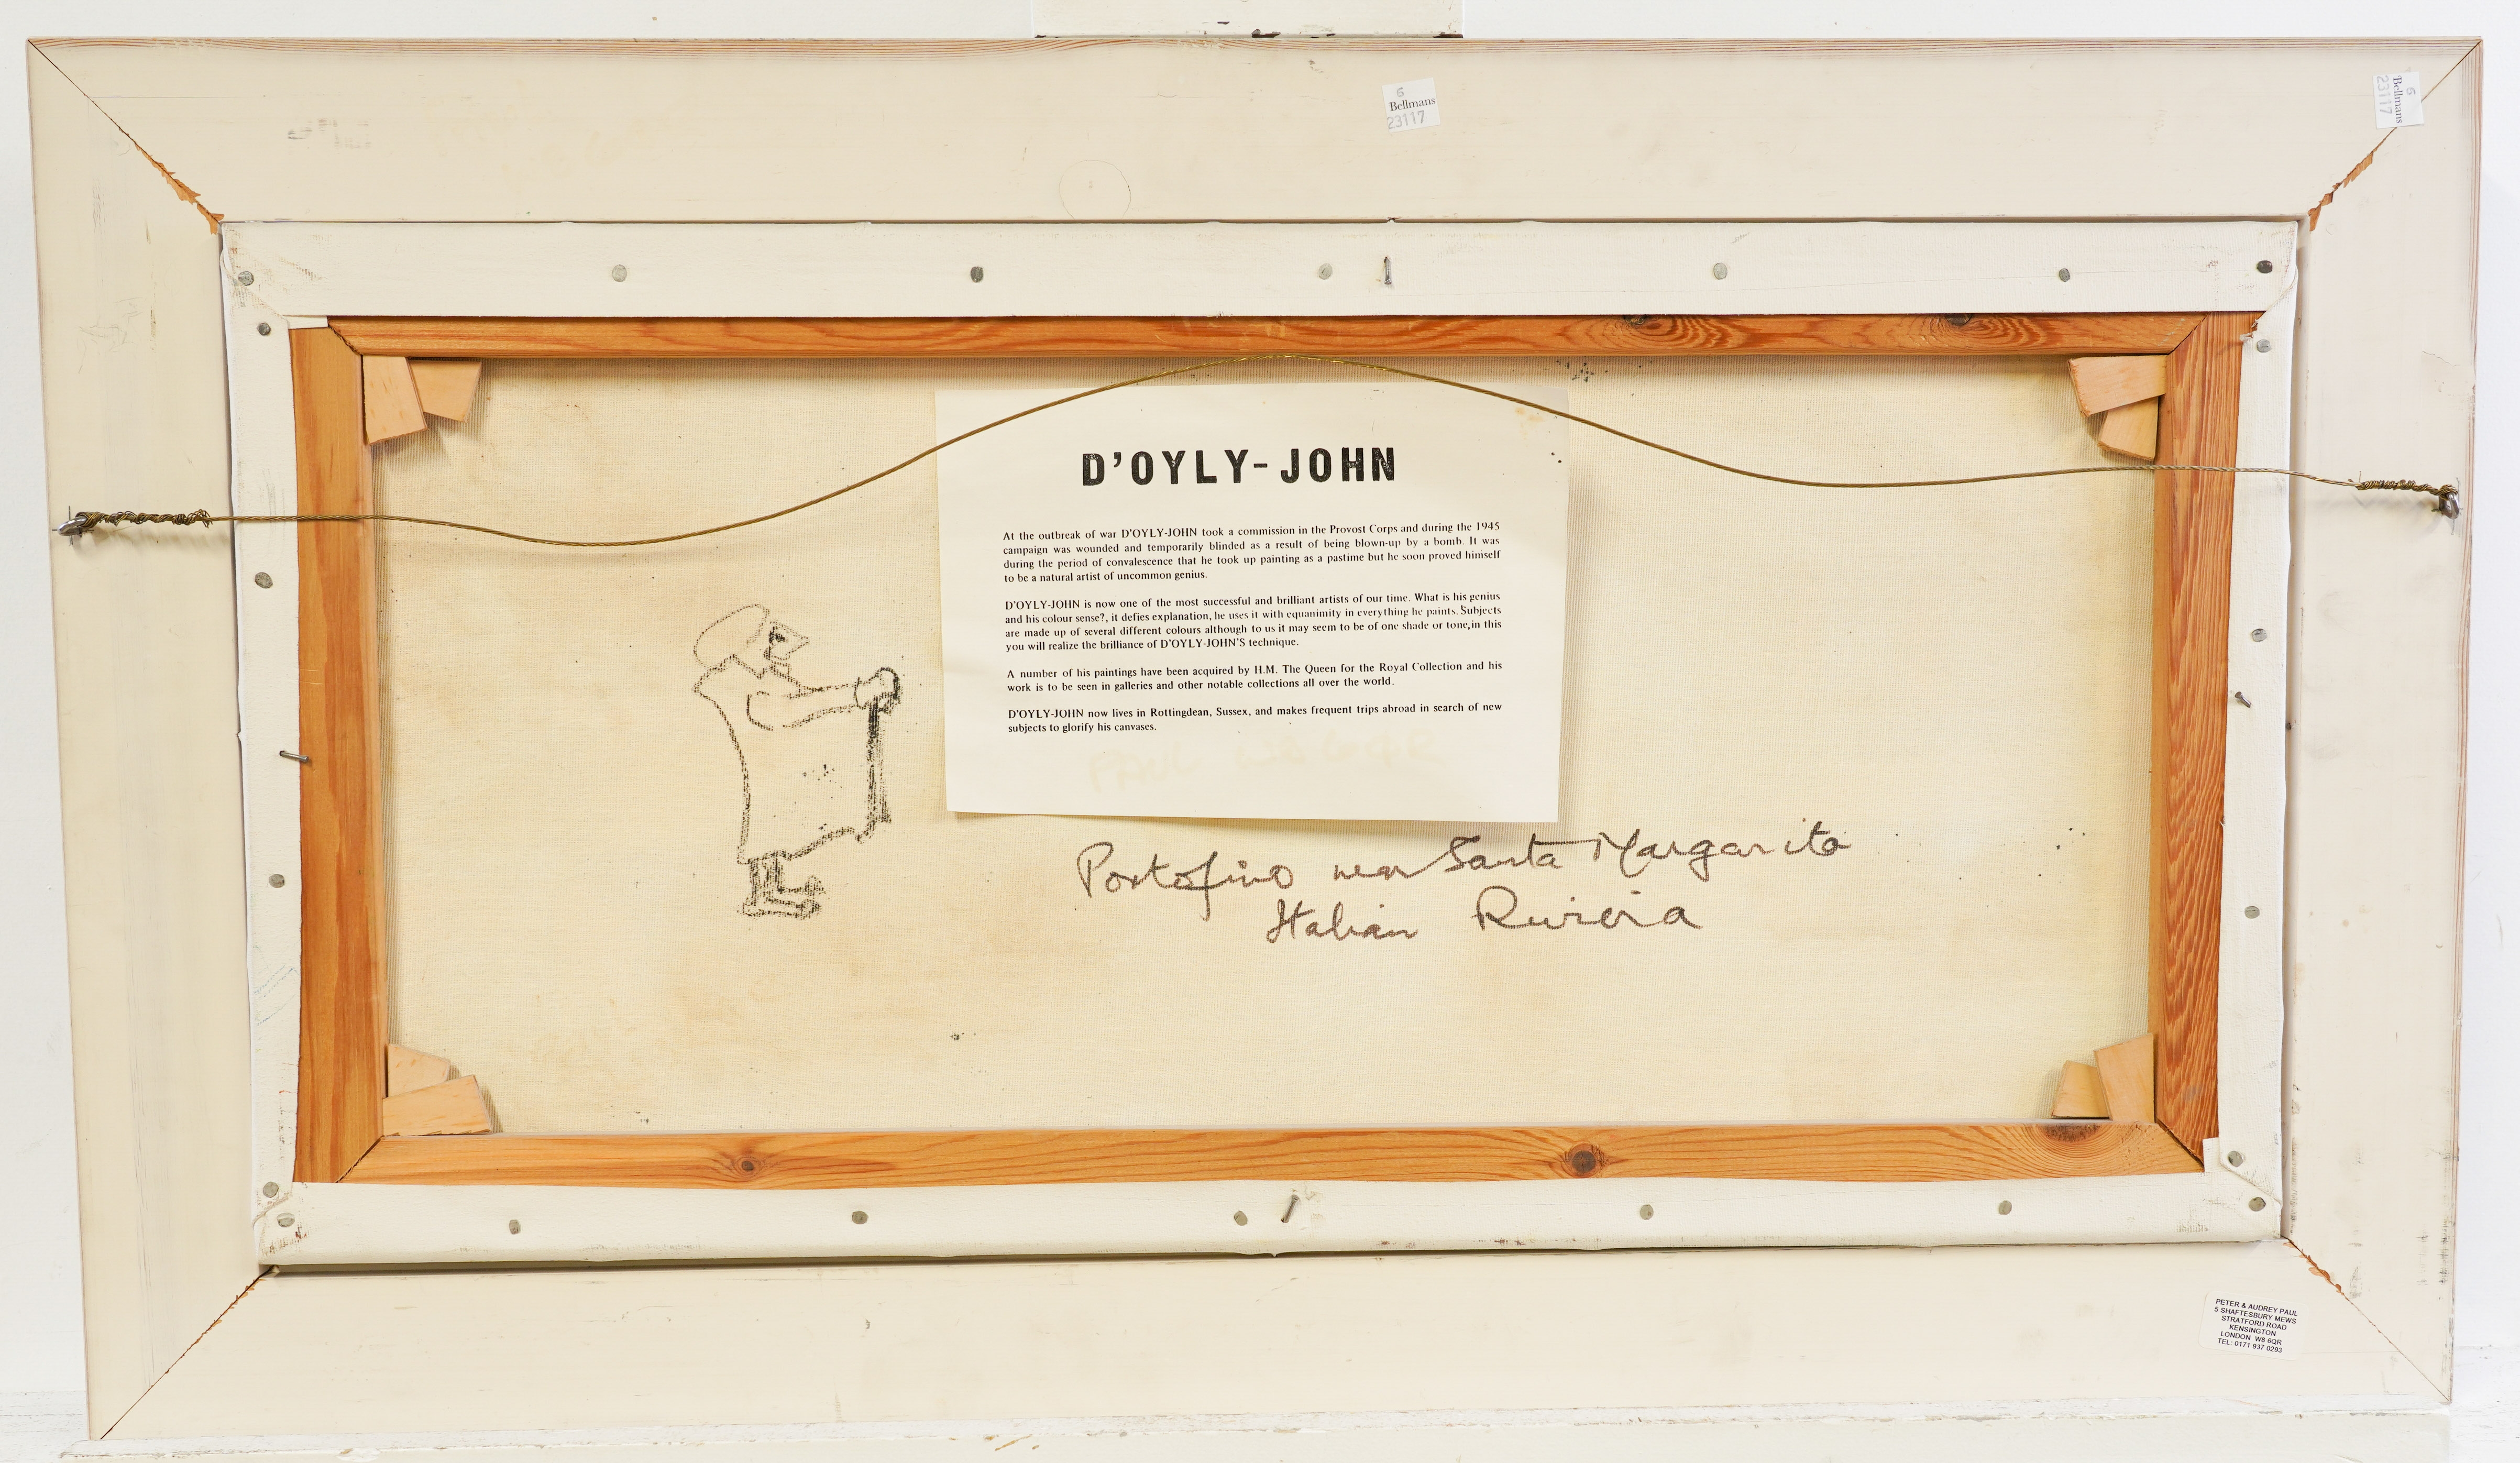 6
Bellmans
23117
6
Bellmans
23117
D'OYLY-JOHN
At the outbreak of war D'OYLY-JOHN took a commission in the Provost Corps and during the 1945
campaign was wounded and temporarily blinded as a result of being blown-up by a bomb. It was
during the period of convalescence that he took up painting as a pastime but he soon proved himself
to be a natural artist of uncommon genius.
D'OYLY-JOHN is now one of the most successful and brilliant artists of our time. What is his genius
and his colour sense?, it defies explanation, he uses it with equanimity in everything he paints. Subjects
are made up of several different colours although to us it may seem to be of one shade or tone,in this
you will realize the brilliance of D'OYLY-JOHN'S technique.
A number of his paintings have been acquired by H.M. The Queen for the Royal Collection and his
work is to be seen in galleries and other notable collections all over the world.
D'OYLY-JOHN now lives in Rottingdean, Sussex, and makes frequent trips abroad in search of new
subjects to glorify his canvases.
Portofino near Santa Margarita
Italian Riviera
PETER & AUDREY PAUL
5 SHAFTESBURY MEWS
STRATFORD ROAD
KENSINGTON
LONDON W8 6QR
TEL: 0171 937 0293